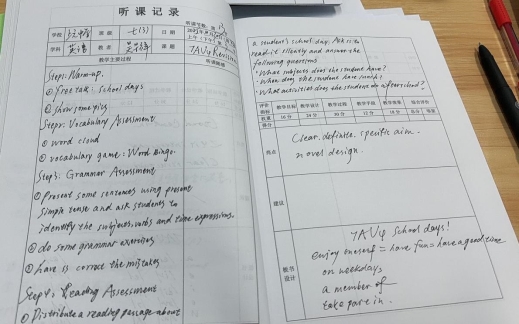 听课记录
学校
班级
七(3)
日期
学科
英语
姓名
课题
7AU4 Revision
教学主要过程
听课随想
Step1: Warm-up.
① Free talk: School days
② Show some pics
Step2: Vocabulary Assessment
① word cloud
② vocabulary game: Word Bingo.
Step3: Grammar Assessment
① Present some sentences using present
simple tense and ask students to
identify the subjects, verbs and time expressions.
② do some grammar exercises
③ correct the mistakes
Step4: Reading Assessment
① Distribute a reading passage about
a student's school day. Ask ss to
read it silently and answer the
following questions
· What subjects does the student have?
When does the student have lunch?
· What activities does the student do after school?
评价指标 教学目标 教学设计 教学过程 教学手段 教学效果 综合评价
权重 10分 20分 30分
得分
亮点
Clear. definite. specific aim.
novel design.
建议
板书设计
7AU4 School days!
enjoy oneself = have fun = have a good time
on weekdays
a member of
take part in.